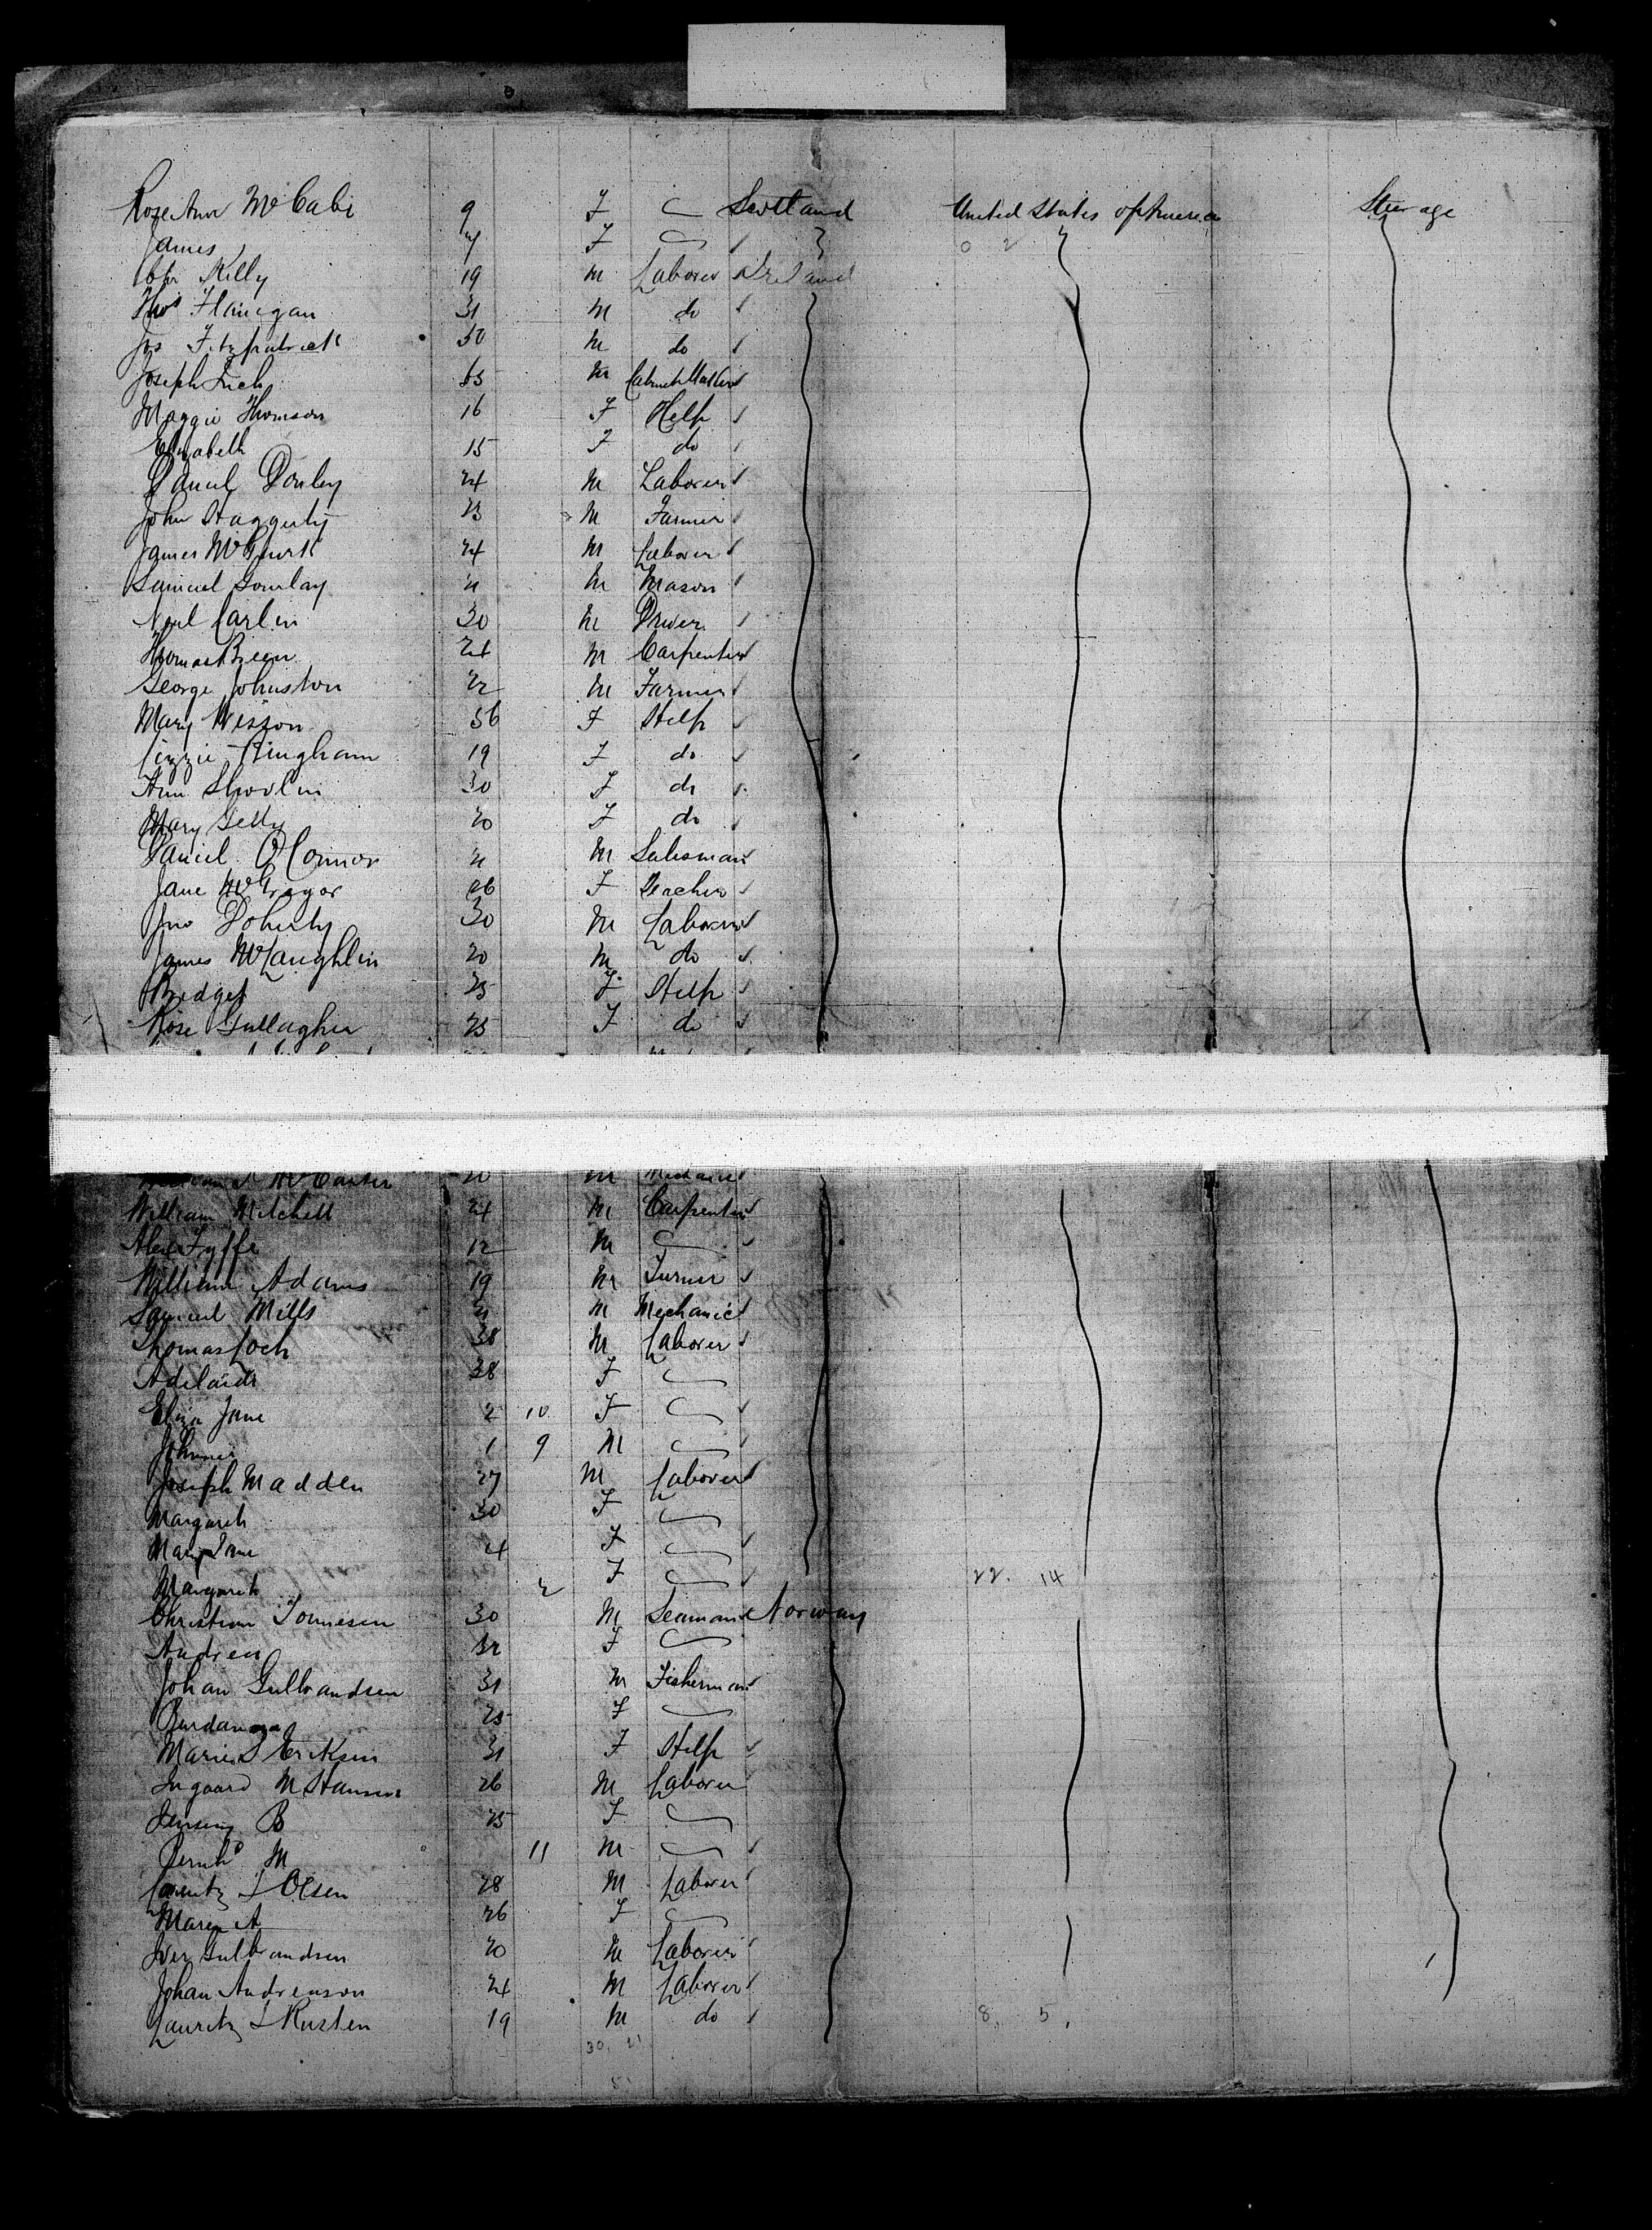 Rose Ann McCabe 9 F Scotland United States of America Steerage
James 7 F 0 2
Kelly 19 M Laborer Ireland
Thos Flanigan 31 M do
Jos Fitzpatrick 50 M do
Joseph M
Maggie Thomson 16 F Help
Elizabeth 15 F do
Daniel Donley 24 M Laborer
John Haggerty 23 M Farmer
James McGurk 24 M Laborer
Samuel Gourlay 21 M Mason
Neil Carlin 30 M Driver
Thomas Breen 24 M Carpenter
George Johnston 22 M Farmer
Mary Wisson 56 F Help
Lizzie Bingham 19 F do
Ann Shovlin 30 F do
Mary Getty 20 F do
Daniel O'Connor 21 M Salesman
Jane McGregor 26 F Teacher
Jno Doherty 30 M Laborer
James McLaughlin 20 M do
Bridget 25 F Help
Rose Gallagher 25 F do
William McCarter 20 M Mechanic
William Mitchell 24 M Carpenter
Alex Fyffe 12 M
William Adams 19 M Turner
Samuel Mills 21 M Mechanic
Thomas Loch 38 M Laborer
Adelaide 38 F
Eliza Jane 2 10 F
Johnnie 1 9 M
Joseph Madden 27 M Laborer
Margaret 30 F
Mary Jane 4 F
Margaret 2 F 22. 14
Christian Tonnesen 30 M Seaman Norway
Andrea 32 F
Johan Gulbrandsen 31 M Fisherman
25 F
Marie S Eriksen 31 F Help
Ingvard M Hansen 26 M Laborer
B 25 F
Bernhd M 11 M
Lorentz L Olsen 28 M Laborer
Maren A 26 F
Iver Gulbrandsen 20 M Laborer
Johan Andrenson 24 M Laborer
Lauritz L Rusten 19 M do 8, 5,
30, 21
51